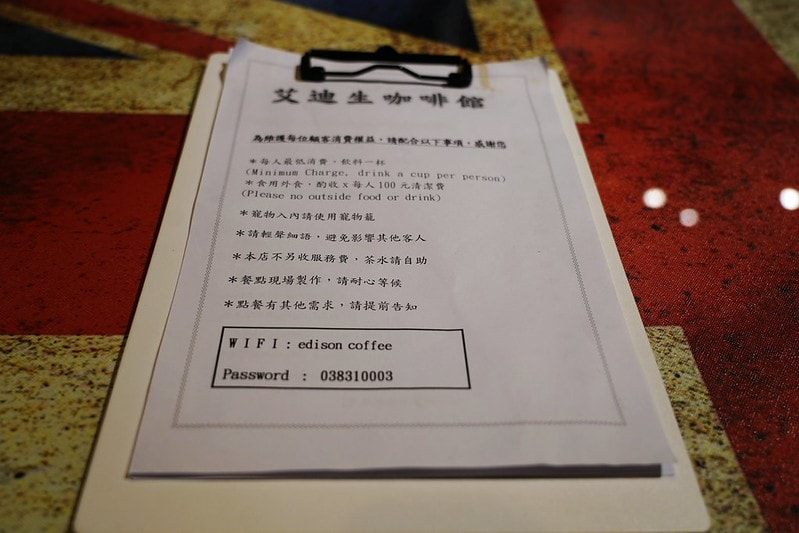 艾迪生咖啡館
為維護每位顧客消費權益，請配合以下事項，感謝您
＊每人最低消費，飲料一杯
(Minimum Charge, drink a cup per person)
＊食用外食，酌收 x 每人 100 元清潔費
(Please no outside food or drink)
＊寵物入內請使用寵物籠
＊請輕聲細語，避免影響其他客人
＊本店不另收服務費，茶水請自助
＊餐點現場製作，請耐心等候
＊點餐有其他需求，請提前告知
WIFI : edison coffee
Password : 038310003